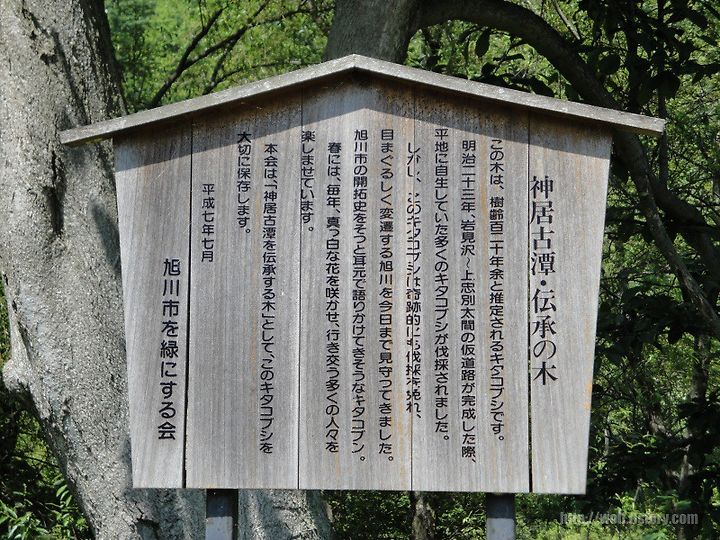 神居古潭・伝承の木
この木は、樹齢百二十年余と推定されるキタコブシです。
明治二十三年、岩見沢～上忠別太間の仮道路が完成した際、
平地に自生していた多くのキタコブシが伐採されました。
しかし、このキタコブシは奇跡的にも伐採を免れ、
目まぐるしく変遷する旭川を今日まで見守ってきました。
旭川市の開拓史をそっと耳元で語りかけてきそうなキタコブシ。
春には、毎年、真っ白な花を咲かせ、行き交う多くの人々を
楽しませています。
本会は、「神居古潭を伝承する木」として、このキタコブシを
大切に保存します。
平成七年七月
旭川市を緑にする会